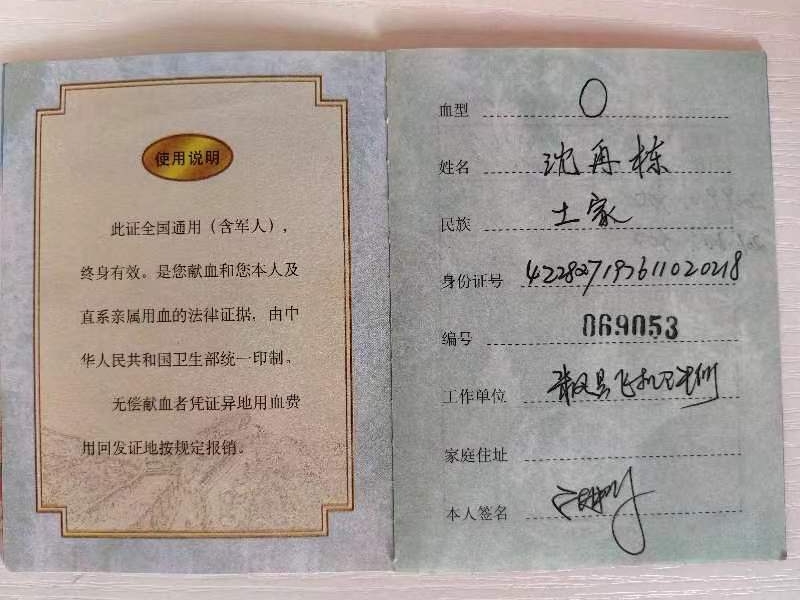 使用说明
此证全国通用(含军人),
终身有效。是您献血和您本人及
直系亲属用血的法律证据,由中
华人民共和国卫生部统一印制。
无偿献血者凭证异地用血费
用回发证地按规定报销。
血型 O
姓名 沈再栋
民族 土家
身份证号
编号 069053
工作单位
家庭住址
本人签名